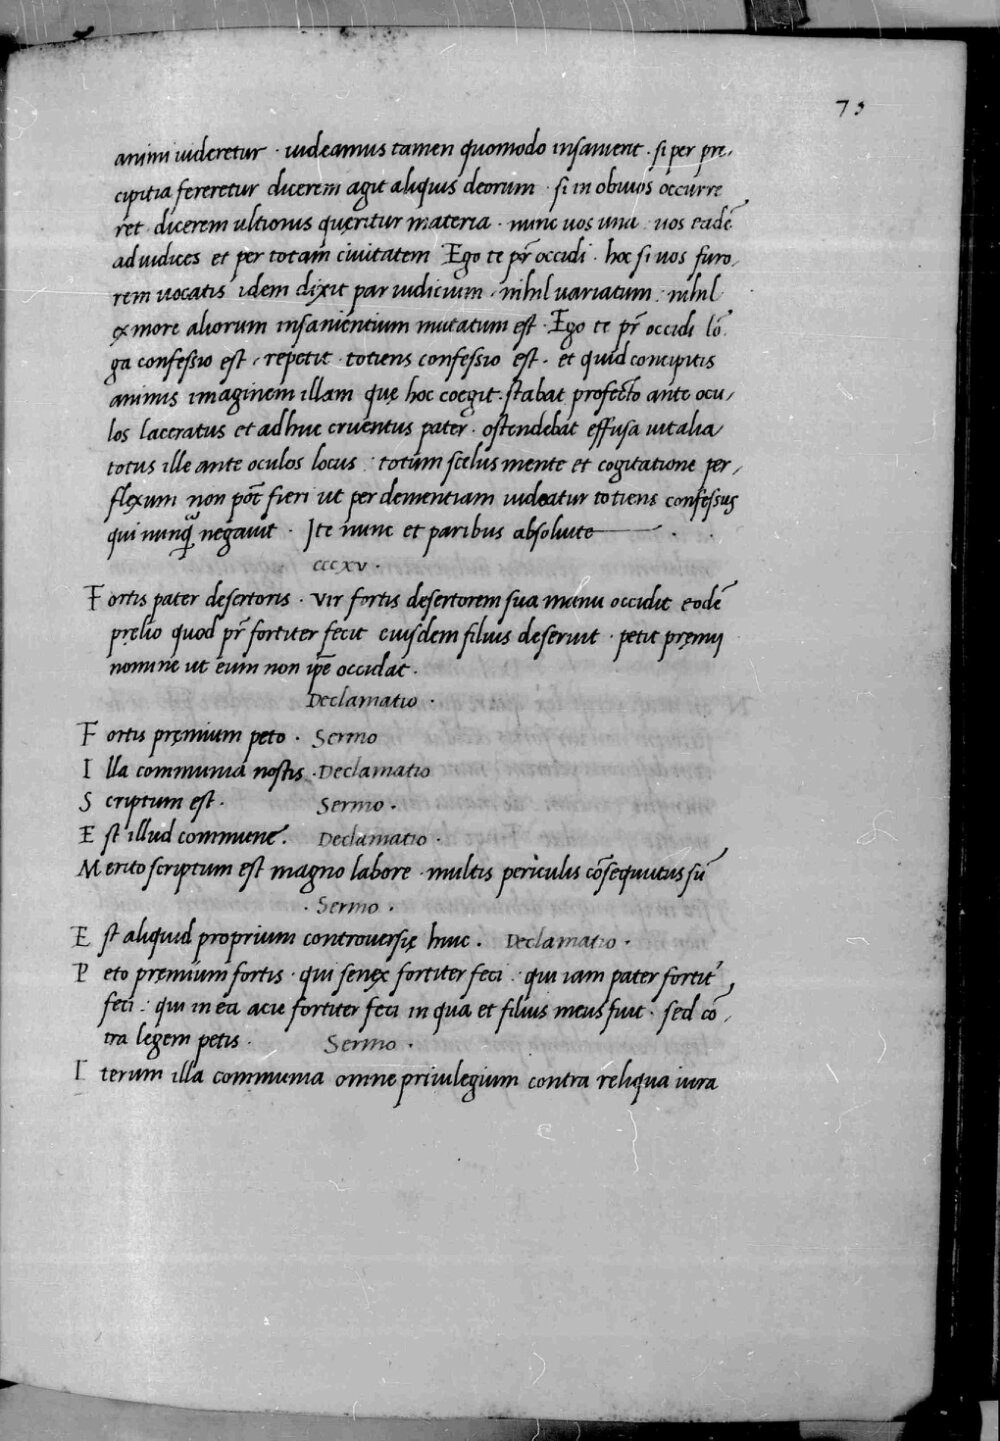 75
animi uideretur · uideamus tamen quomodo insanierit · si per pre,
cipitia fereretur dicerem agit aliquis deorum · si in obuios occurre
ret dicerem ultionis quęritur materia · nunc uos una · uos eadē
ad iudices et per totam ciuitatem Ego te pr̄ occidi · hoc si uos furo,
rem uocatis idem dixit par iudicium · nihil uariatum : nihil
ex more aliorum insanientium mutatum est · Ego te pr̄ occidi lō
ga confessio est, repetit · totiens confessio est · et quid concipitis
animis imaginem illam quę hoc coegit · stabat profecto ante ocu,
los laceratus et adhuc cruentus pater · ostendebat effusa uitalia
totus ille ante oculos locus : totum scelus mente et cogitatione per,
flexum non pōt fieri ut per dementiam uideatur totiens confessus
qui nunq̄ negauit · Ite nunc et paribus absoluite
cccxv ·
Fortis pater desertoris · Vir fortis desertorem sua manu occidit eodē
prelio quod pr̄ fortiter fecit eiusdem filius deseruit · petit pręmij
nomine ut eum non ip̄e occidat ·
Declamatio ·
Fortis pręmium peto · Sermo
Illa communia nostis · Declamatio
Scriptum est · Sermo ·
Est illud commune. Declamatio ·
Merito scriptum est magno labore · multis periculis cōsequutus sū
· Sermo ·
Est aliquid proprium controuersię huic · Declamatio ·
Peto pręmium fortis · qui senex fortiter feci : qui iam pater fortit̄,
feci : qui in ea acie fortiter feci in qua et filius meus fuit · sed cō,
tra legem petis · Sermo ·
Iterum illa communia omne priuilegium contra reliqua iura